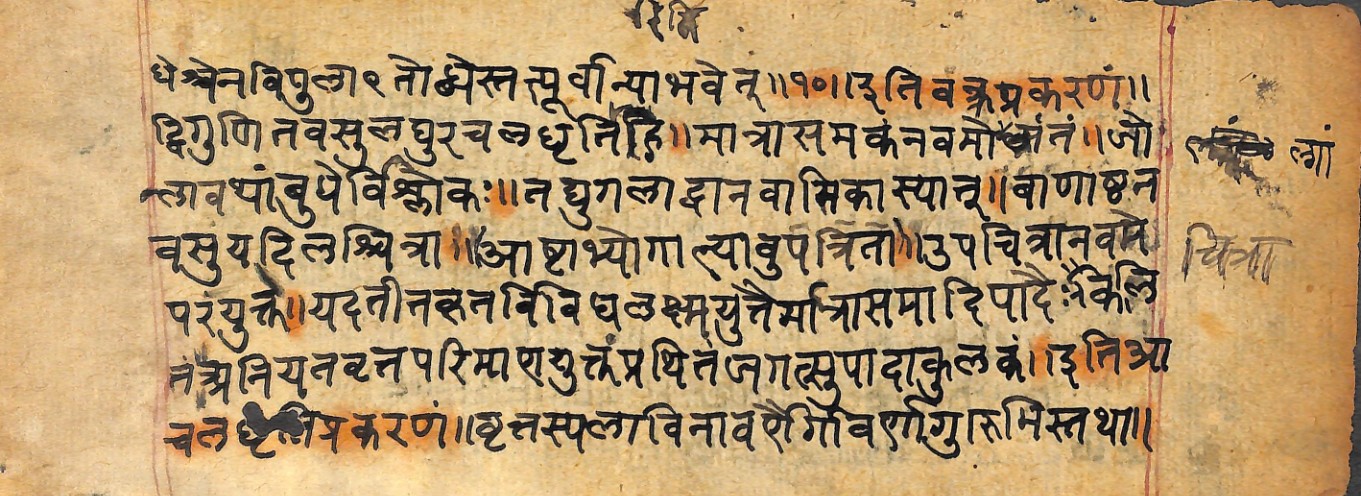 धेश्चेनविपुला९तोब्धेस्तत्पूर्वान्याभवेत्॥१०॥इतिवक्त्रप्रकरणं॥
द्विगुणितवसुलघुरचलधृतिरिति॥मात्रासमकंनवमोल्गांतं॥जो
न्लावथांबुधेर्विश्लोकः॥तद्युगलाद्वानवासिकास्यात्॥बाणाष्टन
वसुयदिलश्चित्रा॥अष्टाभ्योगाल्यावुपचित्रितो॥उपचित्रानवमे
परयुक्ते॥यदतीतकृतविविधलक्ष्मयुतैर्मात्रासमादिपादैःकलि
तंअनियतवृत्तपरिमाणयुक्तंप्रथितंजगत्सुपादाकुलकं।इतिअ
चलधृतिप्रकरणं॥वृत्तस्यलाविनावर्णैर्गावर्णागुरुभिस्तथा॥
ल्गां
चित्रा